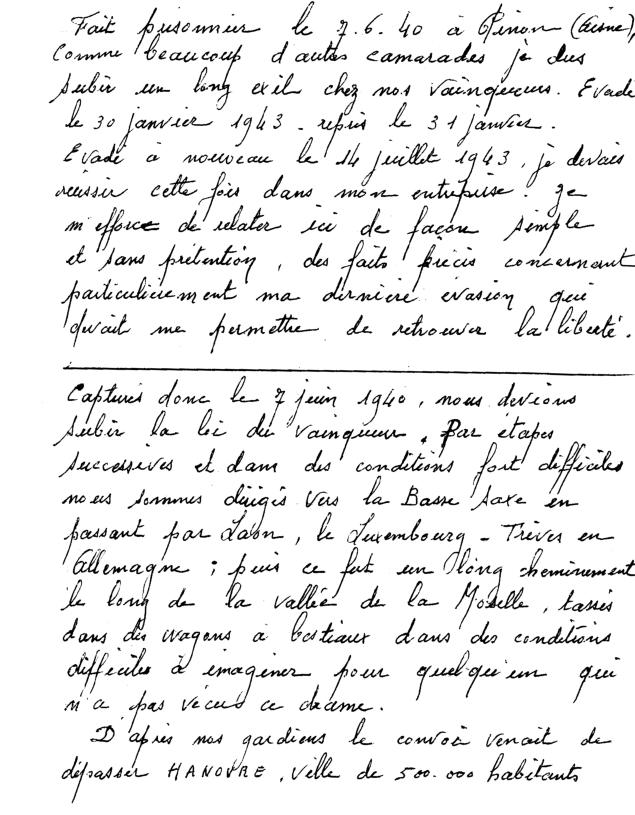 Fait prisonnier le 7.6.40 à Pinon (Aisne),
Comme beaucoup d'autres camarades je dus
subir un long exil chez nos vainqueurs. Evadé
le 30 janvier 1943 - repris le 31 janvier.
Evadé à nouveau le 14 juillet 1943, je devais
réussir cette fois dans mon entreprise. Je
m'efforce de relater ici de façon simple
et sans prétention, des faits précis concernant
particulièrement ma dernière évasion qui
devait me permettre de retrouver la liberté.
Capturés donc le 7 juin 1940, nous devions
subir la loi du vainqueur. Par étapes
successives et dans des conditions fort difficiles
nous sommes dirigés vers la Basse Saxe en
passant par Laon, le Luxembourg - Trèves en
Allemagne ; puis ce fut un long cheminement
le long de la vallée de la Moselle, tassés
dans des wagons à bestiaux dans des conditions
difficiles à imaginer pour quelqu'un qui
n'a pas vécu ce drame.
D'après nos gardiens le convoi venait de
dépasser HANOVRE, ville de 500.000 habitants